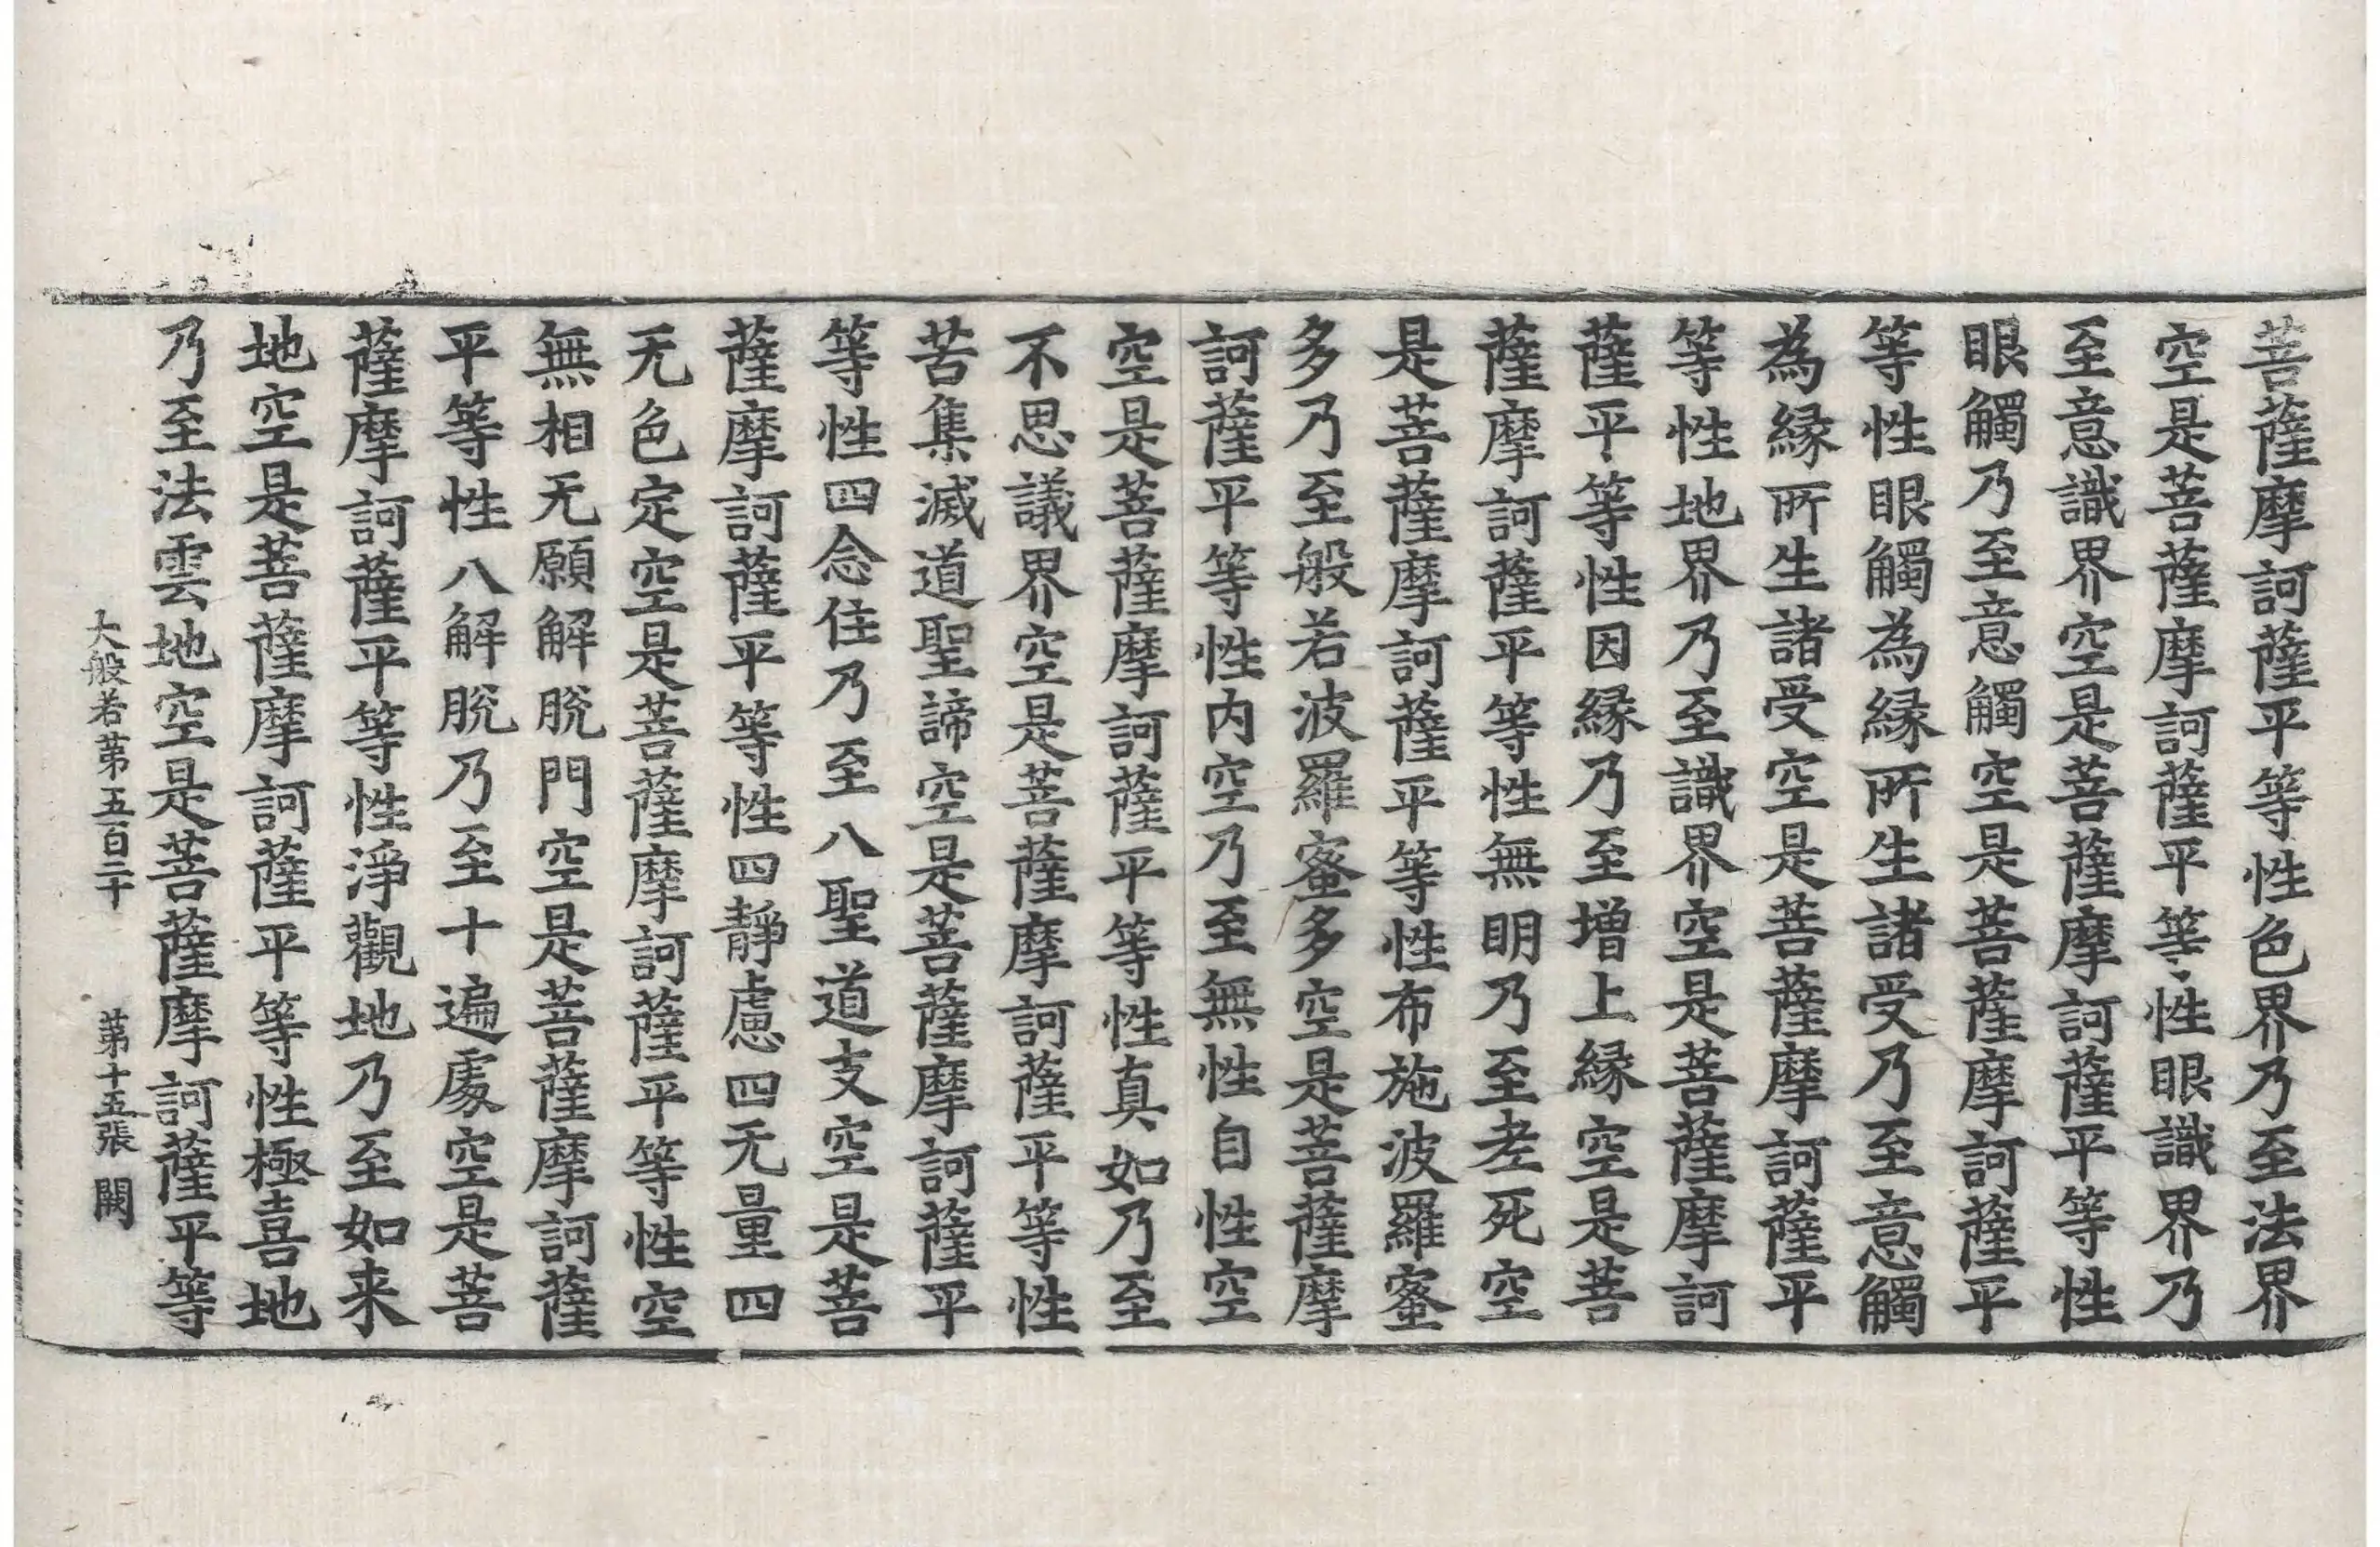 菩薩摩訶薩平等性色界乃至法界
空是菩薩摩訶薩平等性眼識界乃
至意識界空是菩薩摩訶薩平等性
眼觸乃至意觸空是菩薩摩訶薩平
等性眼觸為緣所生諸受乃至意觸
為緣所生諸受空是菩薩摩訶薩平
等性地界乃至識界空是菩薩摩訶
薩平等性因緣乃至增上緣空是菩
薩摩訶薩平等性無明乃至老死空
是菩薩摩訶薩平等性布施波羅蜜
多乃至般若波羅蜜多空是菩薩摩
訶薩平等性内空乃至無性自性空
空是菩薩摩訶薩平等性真如乃至
不思議界空是菩薩摩訶薩平等性
苦集滅道聖諦空是菩薩摩訶薩平
等性四念住乃至八聖道支空是菩
薩摩訶薩平等性四靜慮四无量四
无色定空是菩薩摩訶薩平等性空
無相无願解脫門空是菩薩摩訶薩
平等性八解脫乃至十遍處空是菩
薩摩訶薩平等性淨觀地乃至如来
地空是菩薩摩訶薩平等性極喜地
乃至法雲地空是菩薩摩訶薩平等
大般若第五百二十 第十五張 闕